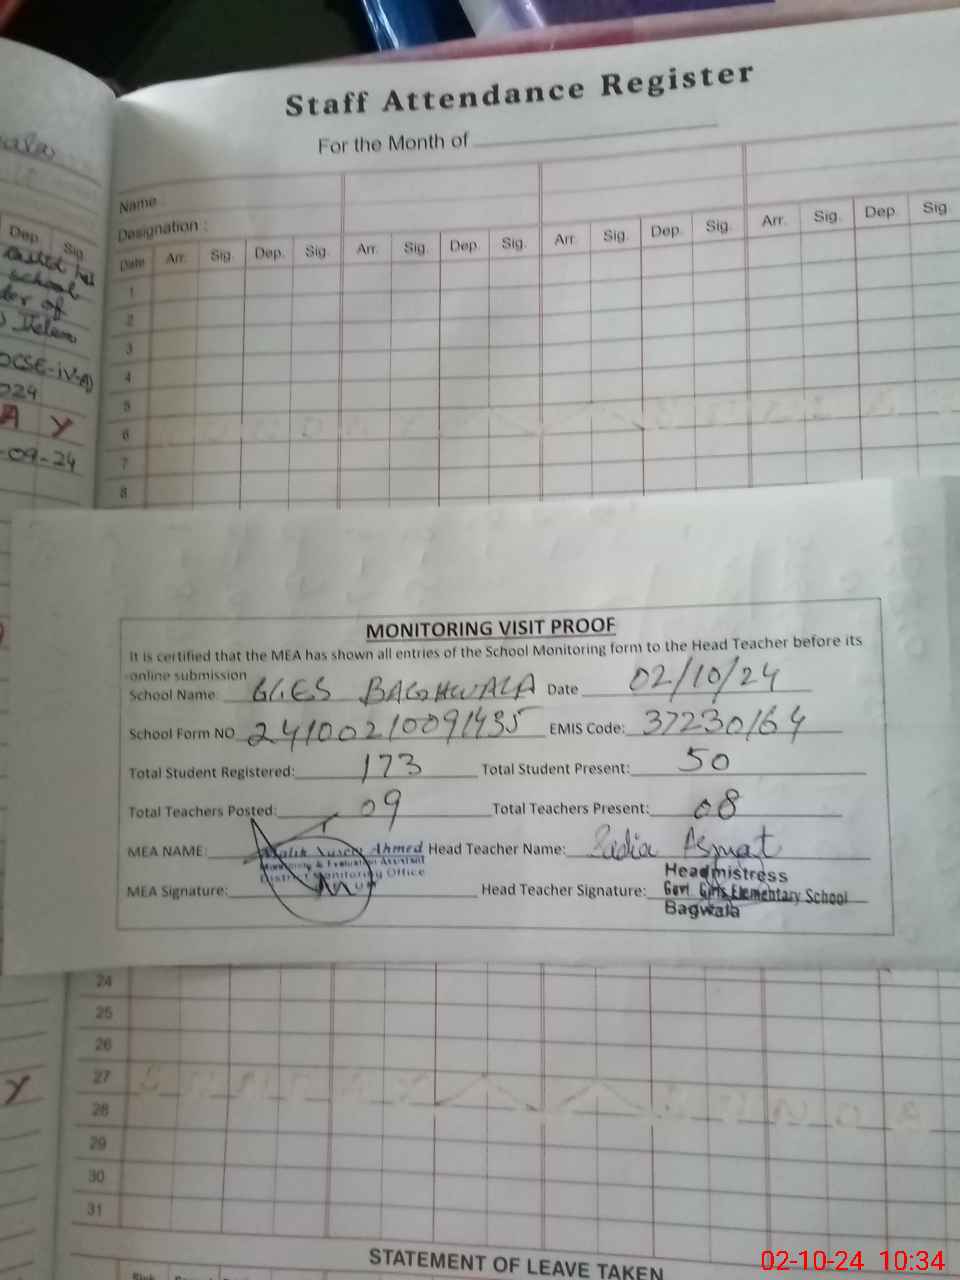 Staff Attendance Register
For the Month of
Name
Designation :
Date Arr. Sig. Dep. Sig. Arr. Sig. Dep. Sig. Arr. Sig. Dep. Sig. Arr. Sig. Dep. Sig
1
2
3
4
5
6
7
8
Dep. Sig.
school
of
2024
A Y
-09-24
MONITORING VISIT PROOF
It is certified that the MEA has shown all entries of the School Monitoring form to the Head Teacher before its
online submission
School Name: GGES BAGHWALA Date 02/10/24
School Form NO 24100210091435 EMIS Code: 37230164
Total Student Registered: 173 Total Student Present: 50
Total Teachers Posted: 09 Total Teachers Present: 08
MEA NAME: Malik Ahmed Head Teacher Name: Asmat
Monitoring & Evaluation Assistant
District Monitoring Office
MEA Signature: Head Teacher Signature:
Headmistress
Govt. Girls Elementary School
Bagwala
24
25
26
27
28
29
30
31
Y
STATEMENT OF LEAVE TAKEN
02-10-24 10:34